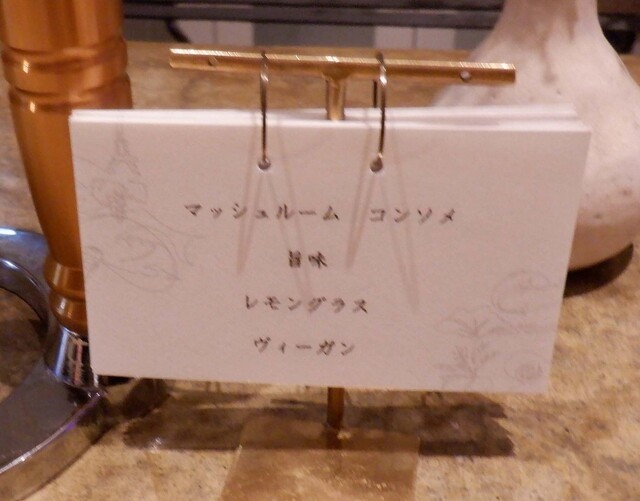 マッシュルーム　コンソメ
旨味
レモングラス
ヴィーガン